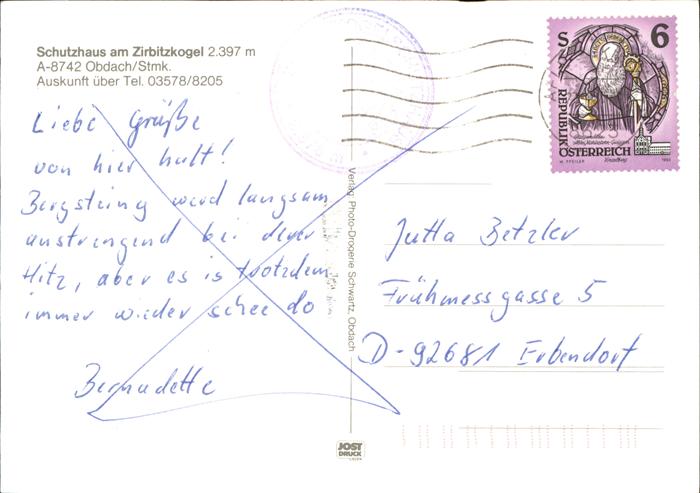 Schutzhaus am Zirbitzkogel 2.397 m
A-8742 Obdach/Stmk.
Auskunft über Tel. 03578/8205
Liebe Grüße
von hier halt!
Bergsteing werd langsam
anstrengend bei derer
Hitz, aber es is trotzdem
immer wieder schee do
Bernadette
Verlag Photo-Drogerie Schwartz, Obdach
JOST
DRUCK
S 6
REPUBLIK
ÖSTERREICH
Jutta Betzler
Frühmessgasse 5
D-92681 Erbendorf